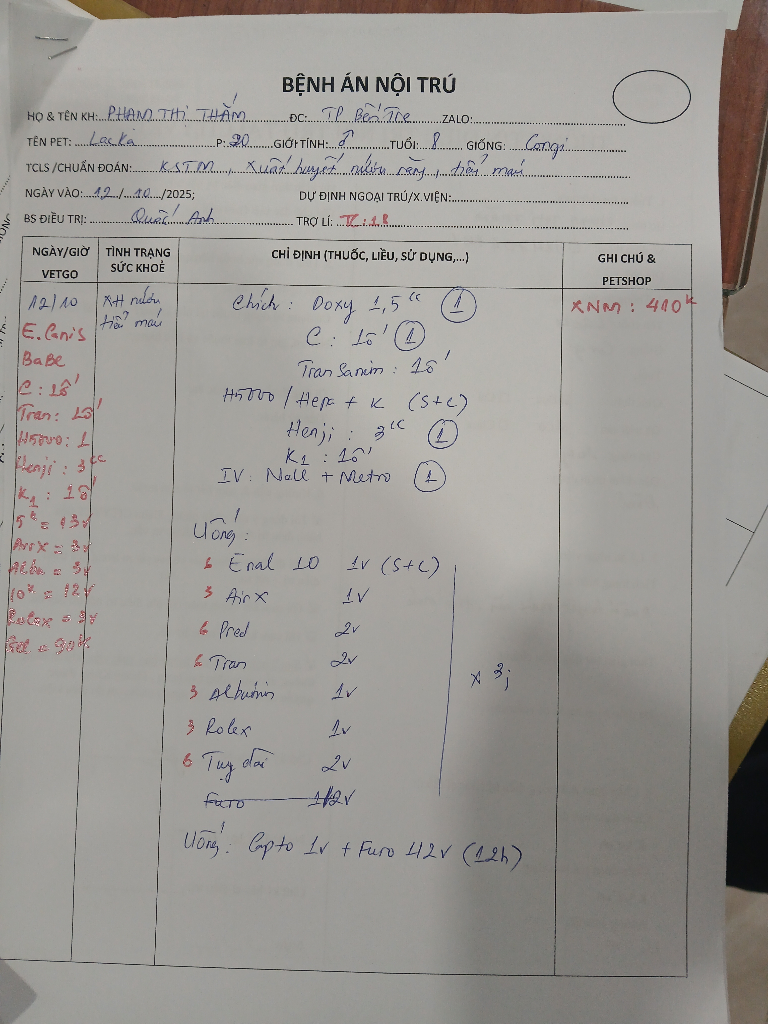 BỆNH ÁN NỘI TRÚ
HỌ & TÊN KH: PHẠM THỊ THẮM ĐC: TP Bến Tre ZALO:
TÊN PET: Lacka P: 20 GIỚI TÍNH: ♂ TUỔI: 8 GIỐNG: Corgi
TCLS /CHUẨN ĐOÁN: KSTM, Xuất huyết nướu răng, tiểu máu
NGÀY VÀO: 12/10/2025; DỰ ĐỊNH NGOẠI TRÚ/X.VIỆN:
BS ĐIỀU TRỊ: Quốc Anh TRỢ LÍ:
NGÀY/GIỜ VETGO
TÌNH TRẠNG SỨC KHOẺ
CHỈ ĐỊNH (THUỐC, LIỀU, SỬ DỤNG,...)
GHI CHÚ & PETSHOP
12/10
E. Canis
BaBe
C: 1ố
Tran: 1ố
H5000: 1
Henji: 3cc
K1: 1ố
5k = 13v
AirX = 3v
Albu = 3v
10k = 12v
Rolex = 3v
= 90k
XH nướu
tiểu máu
Chích: Doxy 1,5cc 1
C: 1ố 1
Transamin: 1ố
H5000 / Hepa + K (S+C)
Henji: 3cc 1
K1: 1ố
IV: Nacl + Metro 1
Uống:
6 Enal 10 1v (S+C)
3 AirX 1v
6 Pred 2v
6 Tran 2v
3 Albumin 1v
3 Rolex 1v
6 Tuy dài 2v
Furo 1/2v
x 3j
Uống: Capto 1v + Furo 1/2v (12h)
XNM: 410k